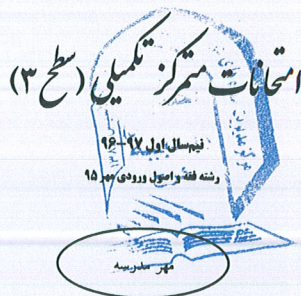 امتحانات متمرکز تکمیلی (سطح ۳)
نیم‌سال اول ۹۷-۹۶
رشته فقه و اصول ورودی مهر ۹۵
مهر مدرسه